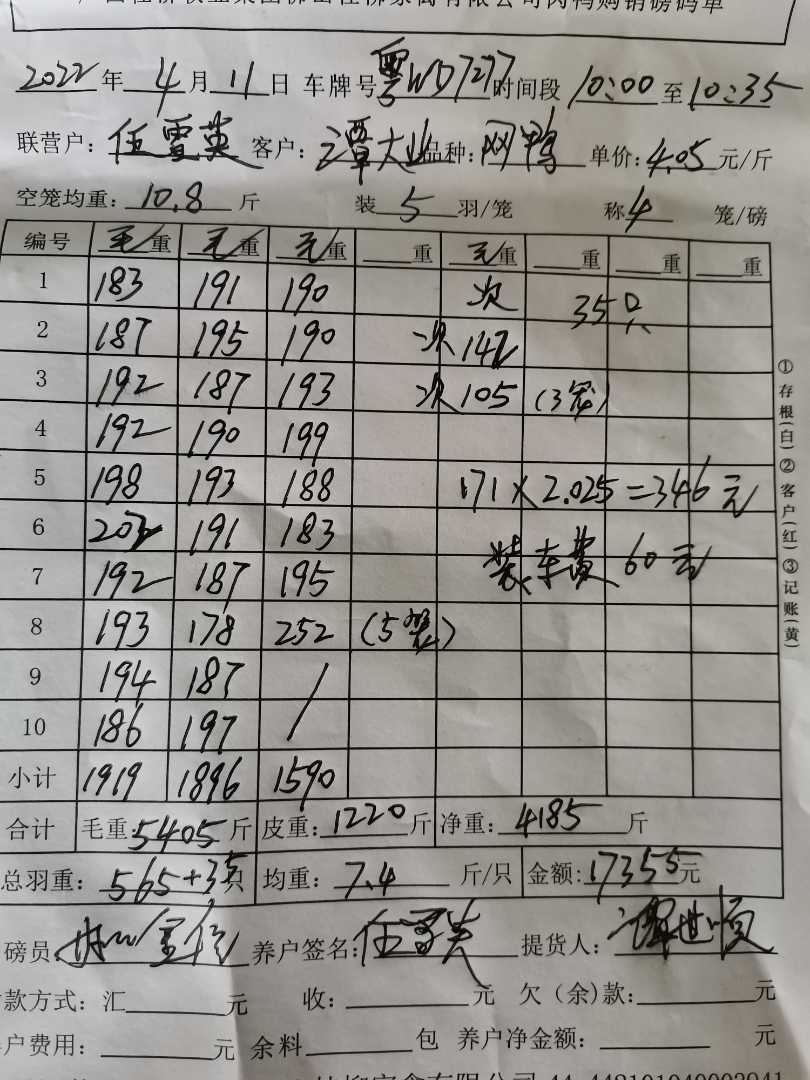 2022年4月11日 车牌号粤WD7277时间段10:00至10:35
联营户:伍雪英 客户:谭大业品种:网鸭 单价:4.05元/斤
空笼均重:10.8斤 装5羽/笼 称4笼/磅
编号 毛重 毛重 毛重 重 毛重 重 重 重
1 183 191 190 次 35只
2 187 195 190 次142
3 192 187 193 次105 (3笼)
4 192 190 199
5 198 193 188 171×2.025=346元
6 202 191 183 装车费60元
7 192 187 195
8 193 178 252 (5笼)
9 194 187 /
10 186 197
小计 1919 1896 1590
合计 毛重:5405斤 皮重:1220斤 净重:4185斤
总羽重:565+35只 均重:7.4斤/只 金额:17355元
磅员: 养户签名:伍雪英 提货人:谭世顺
款方式:汇 元 收: 元 欠(余)款: 元
户费用: 元 余料 包 养户净金额: 元
①存根(白)②客户(红)③记账(黄)